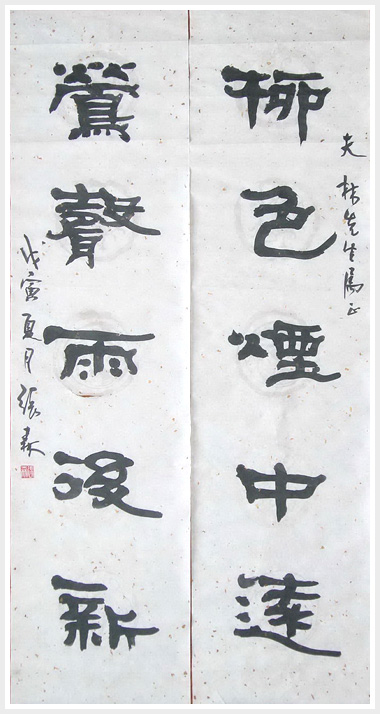 夫林先生属正
柳色煙中遠
鶯聲雨後新
戊寅夏月張森